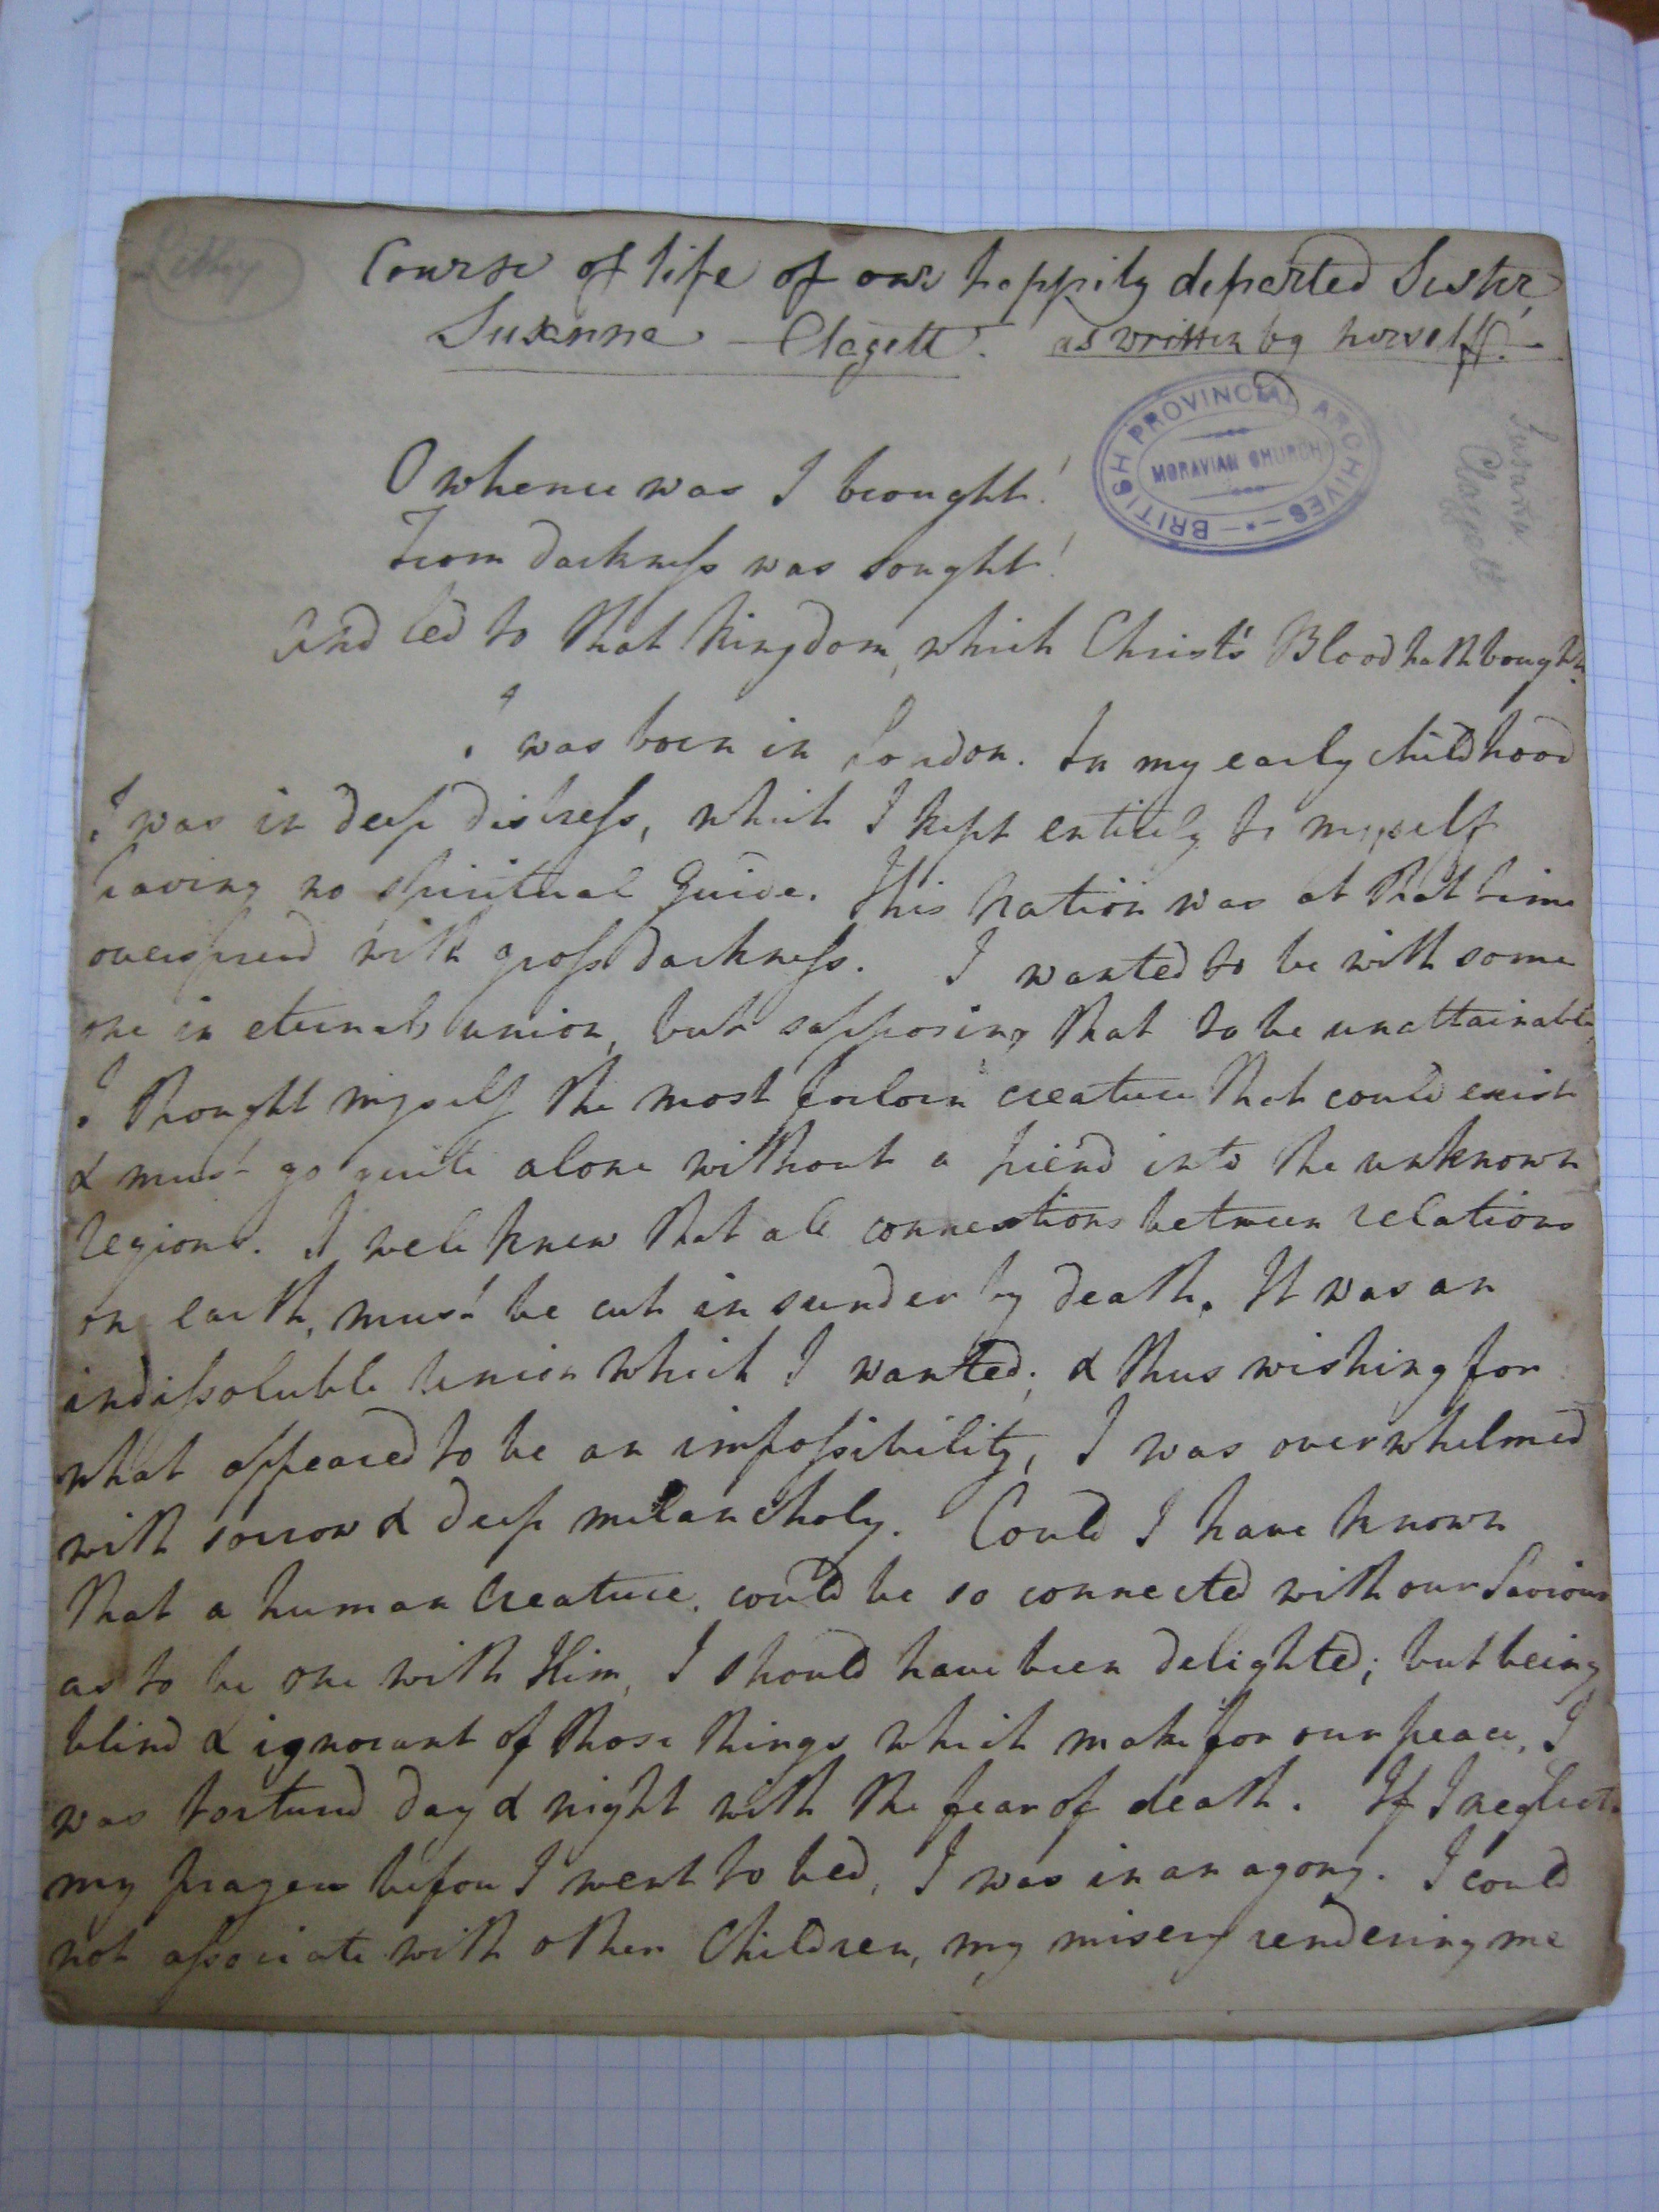 Course of life of our happily departed Sister
Susanna Clagett. as written by herself.
BRITISH PROVINCIAL ARCHIVES
MORAVIAN CHURCH
Susanna
Claggett
O whence was I brought!
From darkness was sought!
And led to that Kingdom, which Christ's Blood hath bought.
I was born in London. In my early childhood
I was in deep distress, which I kept entirely to myself
having no spiritual Guide. This Nation was at that time
overspread with gross darkness. I wanted to be with some
one in eternal union, but supposing that to be unattainable
I thought myself the most forlorn creature that could exist
& must go quite alone without a friend into the unknown
regions. I well knew that all connections between relations
on earth, must be cut in sunder by death. It was an
indissoluble Union which I wanted; & thus wishing for
what appeared to be an impossibility, I was overwhelmed
with sorrow & deep melancholy. Could I have known
that a human Creature could be so connected with our Saviour
as to be one with Him, I should have been delighted; but being
blind & ignorant of those things which make for our peace, I
was tortured day & night with the fear of death. If I neglect
my prayers before I went to bed, I was in an agony. I could
not associate with other Children, my misery rendering me